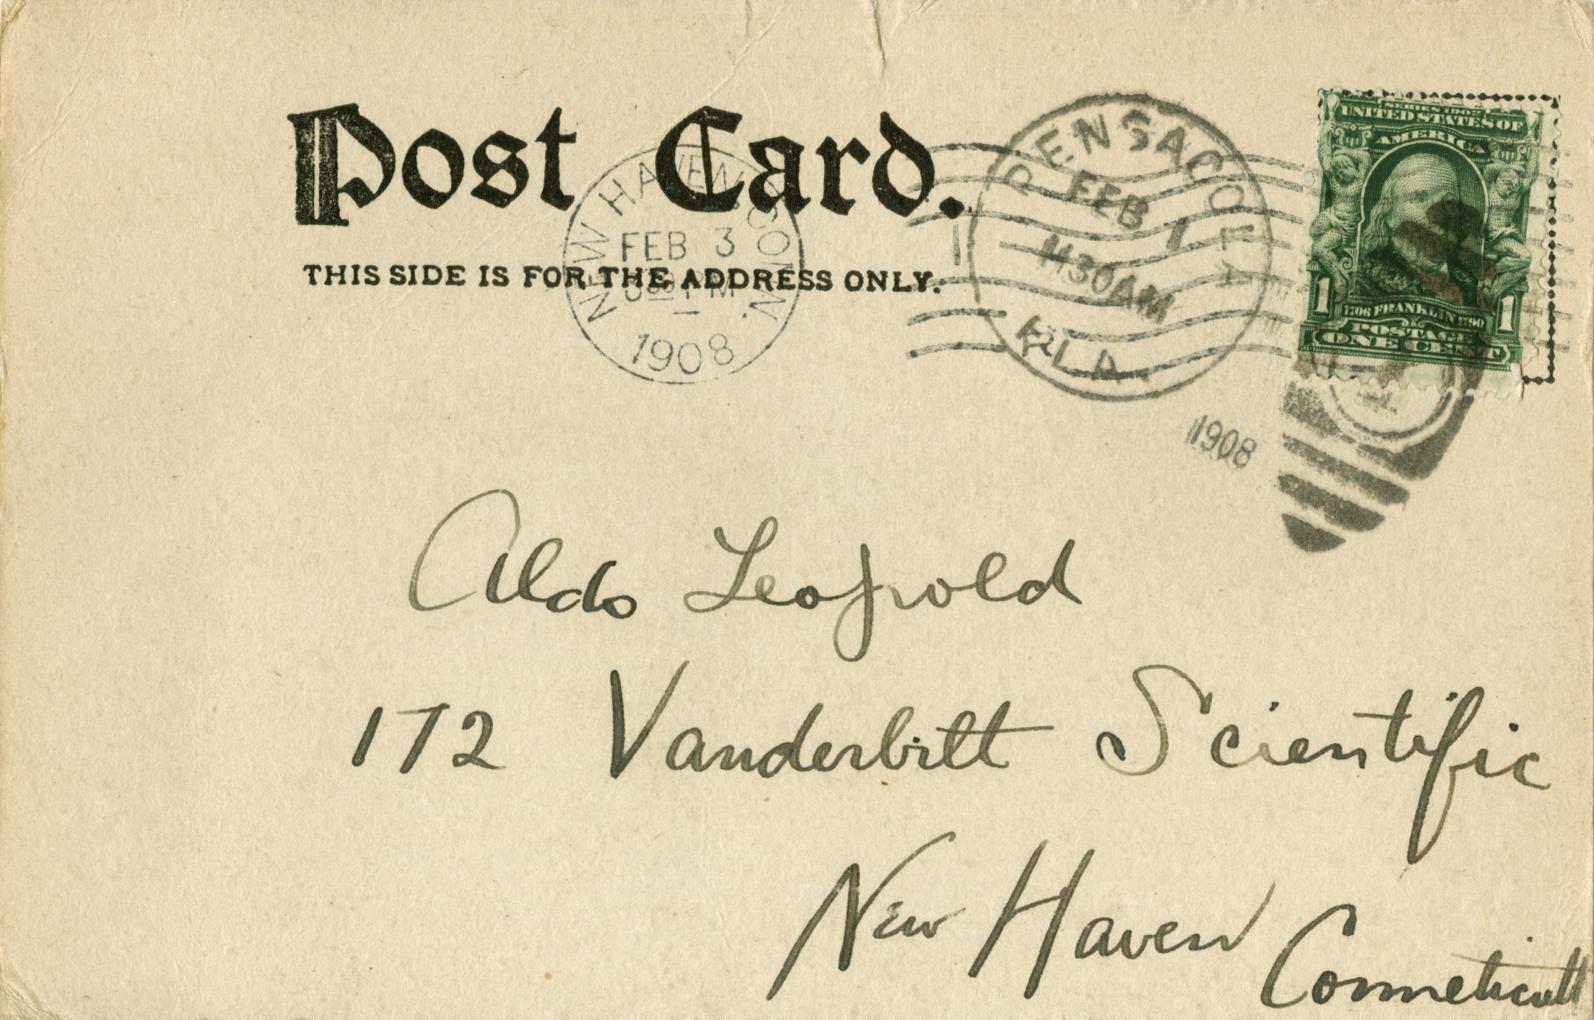 Post Card.
THIS SIDE IS FOR THE ADDRESS ONLY.
NEW HAVEN, CONN.
FEB 3
PM
1908
PENSACOLA
FEB 1
1130AM
FLA.
1908
SERIES 1902
UNITED STATES OF
AMERICA
1706 FRANKLIN 1790
POSTAGE
1 ONE CENT 1
Aldo Leopold
172 Vanderbilt Scientific
New Haven
Conneticutt